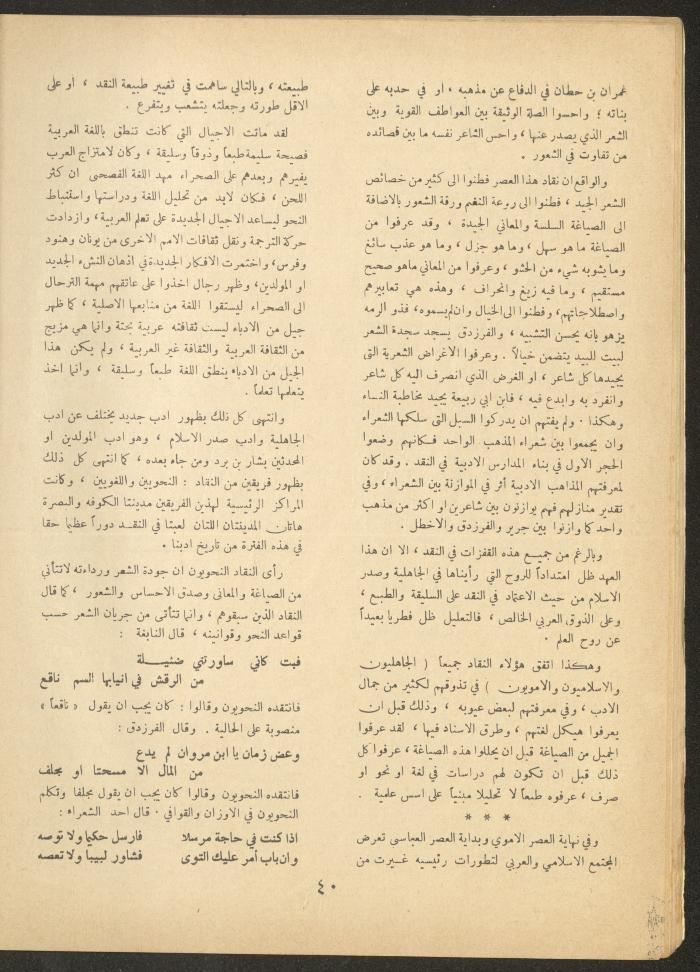 عمران بن حطان في الدفاع عن مذهبه ، او في حدبه على
بناته ؛ واحسوا الصلة الوثيقة بين العواطف القوية وبين
الشعر الذي يصدر عنها ، واحس الشاعر نفسه ما بين قصائده
من تفاوت في الشعور .
والواقع ان نقاد هذا العصر فطنوا الى كثير من خصائص
الشعر الجيد ، فطنوا الى روعة النغم ورقة الشعور بالاضافة
الى الصياغة السلسة والمعاني الجيدة ، وقد عرفوا من
الصياغة ما هو سهل ، وما هو جزل ، وما هو عذب سائغ
وما يشوبه شيء من الحشو ، وعرفوا من المعاني ما هو صحيح
مستقيم ، وما فيه زيغ وانحراف ، وهذه هي تعابيرهم
واصطلاحاتهم ، وفطنوا الى الخيال وان لم يسموه ، فذو الرمه
يزهو بانه يحسن التشبيه ، والفرزدق يسجد سجدة الشعر
لبيت للبيد يتضمن خيالاً . وعرفوا الاغراض الشعرية التي
يجيدها كل شاعر ، او الغرض الذي انصرف اليه كل شاعر
وانفرد به وابدع فيه ، فابن ابي ربيعة يجيد مخاطبة النساء
وهكذا . ولم يفتهم ان يدركوا السبل التي سلكها الشعراء
وان يجمعوا بين شعراء المذهب الواحد فكانهم وضعوا
الحجر الاول في بناء المدارس الادبية في النقد . وقد كان
لمعرفتهم المذاهب الادبية أثر في الموازنة بين الشعراء ، وفي
تقدير منازلهم فهم يوازنون بين شاعرين او اكثر من مذهب
واحد كما وازنوا بين جرير والفرزدق والاخطل .
وبالرغم من جميع هذه القفزات في النقد ، الا ان هذا
العهد ظل امتداداً للروح التي رأيناها في الجاهلية وصدر
الاسلام من حيث الاعتماد في النقد على السليقة والطبع ،
وعلى الذوق العربي الخالص ، فالتعليل ظل فطريا بعيداً
عن روح العلم .
وهكذا اتفق هؤلاء النقاد جميعاً ( الجاهليون
والاسلاميون والامويون ) في تذوقهم لكثير من جمال
الادب ، وفي معرفتهم لبعض عيوبه ، وذلك قبل ان
يعرفوا هيكل لغتهم ، وطرق الاسناد فيها ، لقد عرفوا
الجميل من الصياغة قبل ان يحللوا هذه الصياغة ، عرفوا كل
ذلك قبل ان تكون لهم دراسات في لغة او نحو او
صرف ، عرفوه طبعاً لا تحليلا مبنياً على اسس علمية .
* * *
وفي نهاية العصر الاموي وبداية العصر العباسي تعرض
المجتمع الاسلامي والعربي لتطورات رئيسيه غيرت من
طبيعته ، وبالتالي ساهمت في تغيير طبيعة النقد ، او على
الاقل طورته وجعلته يتشعب ويتفرع .
لقد ماتت الاجيال التي كانت تنطق باللغة العربية
فصيحة سليمة طبعاً وذوقاً وسليقة ، وكان لامتزاج العرب
بغيرهم وبعدهم على الصحراء مهد اللغة الفصحى ان كثر
اللحن ، فكان لابد من تحليل اللغة ودراستها واستنباط
النحو ليساعد الاجيال الجديدة على تعلم العربية ، وازدادت
حركة الترجمة ونقل ثقافات الامم الاخرى من يونان وهنود
وفرس ، واختمرت الافكار الجديدة في اذهان النشء الجديد
او المولدين ، وظهر رجال اخذوا على عاتقهم مهمة الترحال
الى الصحراء ليستقوا اللغة من منابعها الاصلية ، كما ظهر
جيل من الادباء ليست ثقافته عربية بحتة وانما هي مزيج
من الثقافة العربية والثقافة غير العربية ، ولم يكن هذا
الجيل من الادباء ينطق اللغة طبعاً وسليقة ، وانما اخذ
يتعلمها تعلماً .
وانتهى كل ذلك بظهور ادب جديد يختلف عن ادب
الجاهلية وادب صدر الاسلام ، وهو ادب المولدين او
المحدثين بشار بن برد ومن جاء بعده ، كما انتهى كل ذلك
بظهور فريقين من النقاد : النحويين واللغويين ، وكانت
المراكز الرئيسية لهذين الفريقين مدينتا الكوفه والبصرة
هاتان المدينتان اللتان لعبتا في النقد دوراً عظيما حقا
في هذه الفترة من تاريخ ادبنا .
رأى النقاد النحويون ان جودة الشعر ورداءته لا تتأتي
من الصياغة والمعاني وصدق الاحساس والشعور ، كما قال
النقاد الذين سبقوهم ، وانما تتأتى من جريان الشعر حسب
قواعد النحو وقوانينه ، قال النابغة :
فبت كاني ساورتني ضئيلة
من الرقش في انيابها السم ناقع
فانتقده النحويون وقالوا : كان يجب ان يقول « ناقعاً »
منصوبة على الحالية . وقال الفرزدق :
وعض زمان يا ابن مروان لم يدع
من المال الا مسحتا او مجلف
فانتقده النحويون وقالوا كان يجب ان يقول مجلفا وتكلم
النحويون في الاوزان والقوافي . قال احد الشعراء :
اذا كنت في حاجة مرسلا فارسل حكيما ولا توصه
وان باب أمر عليك التوى فشاور لبيبا ولا تعصه
٤٠